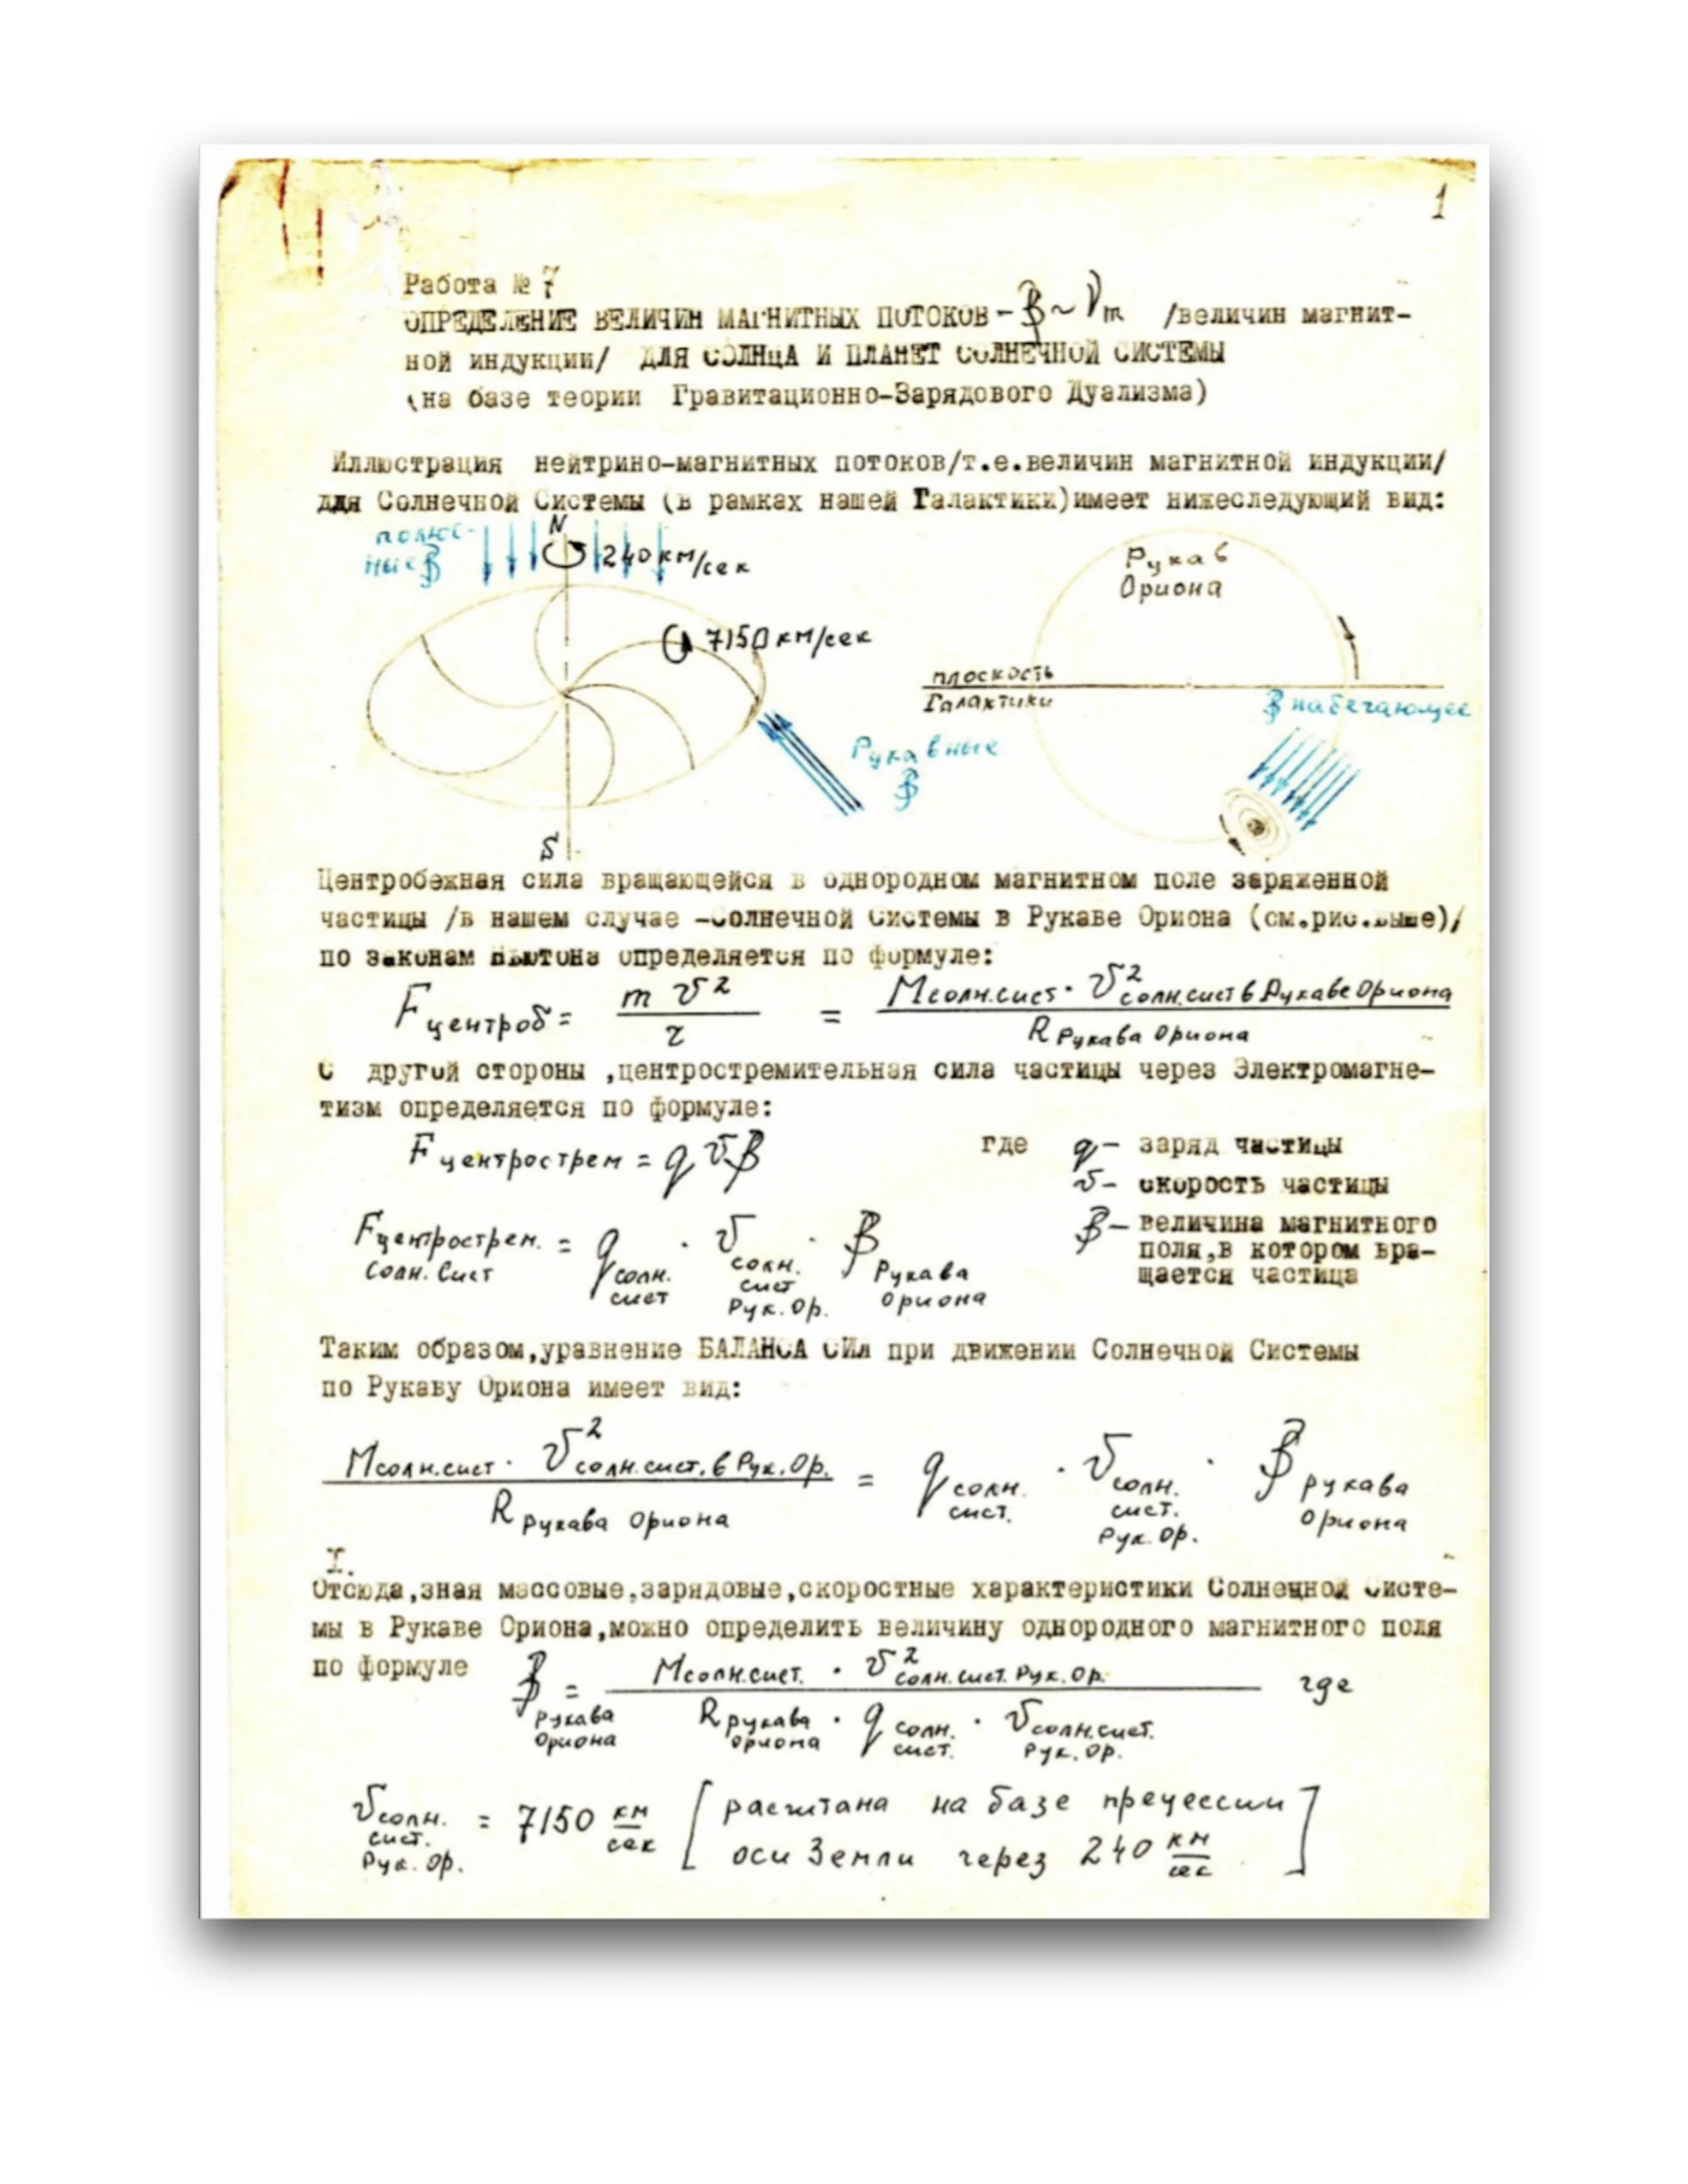 1
Работа № 7
ОПРЕДЕЛЕНИЕ ВЕЛИЧИН МАГНИТНЫХ ПОТОКОВ - B ~ νm /величин магнит-
ной индукции/ ДЛЯ СОЛНЦА И ПЛАНЕТ СОЛНЕЧНОЙ СИСТЕМЫ
(на базе теории Гравитационно-Зарядового Дуализма)
Иллюстрация нейтрино-магнитных потоков/т.е.величин магнитной индукции/
для Солнечной Системы (в рамках нашей Галактики)имеет нижеследующий вид:
полюс-
ные B
N
240 км/сек
7150 км/сек
Рукавные
B
S
Рукав
Ориона
плоскость
Галактики
B набегающее
Центробежная сила вращающейся в однородном магнитном поле заряженной
частицы /в нашем случае -Солнечной Системы в Рукаве Ориона (см.рис.выше)/
по законам Ньютона определяется по формуле:
F центроб = m v² / r = Mсолн.сист · v² солн.сист в Рукаве Ориона / R Рукава Ориона
С другой стороны ,центростремительная сила частицы через Электромагне-
тизм определяется по формуле:
F центрострем = q v B
где q - заряд частицы
v - скорость частицы
B - величина магнитного
поля,в котором вра-
щается частица
F центрострем. Солн. Сист = q солн. сист · v солн. сист Рук. Ор. · B Рукава Ориона
Таким образом,уравнение БАЛАНСА СИЛ при движении Солнечной Системы
по Рукаву Ориона имеет вид:
Mсолн.сист · v² солн.сист. в Рук. Ор. / R Рукава Ориона = q солн. сист. · v солн. сист. Рук. Ор. · B Рукава Ориона
I.
Отсюда,зная массовые,зарядовые,скоростные характеристики Солнечной Систе-
мы в Рукаве Ориона,можно определить величину однородного магнитного поля
по формуле B Рукава Ориона = Mсолн.сист. · v² солн.сист. Рук. Ор. / R рукава Ориона · q солн. сист. · v солн.сист. Рук. Ор. где
v солн. сист. Рук. Ор. = 7150 км/сек [расчитана на базе прецессии
оси Земли через 240 км/сек]